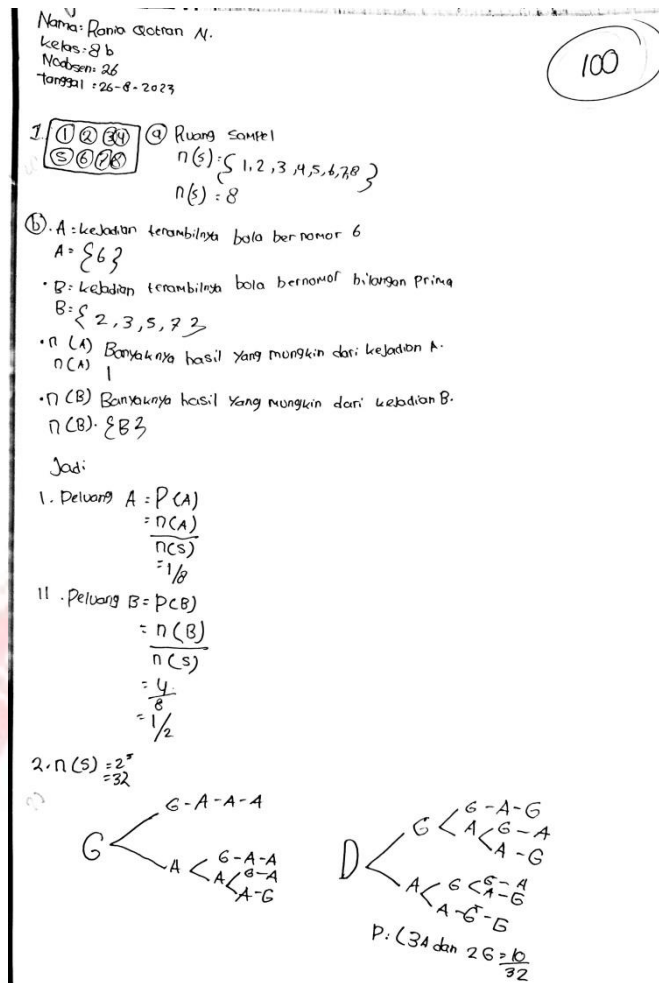 Nama: Rania Qotran N.
Kelas: 8 b
Noabsen: 26
tanggal : 26-8-2023
100
1. 1 2 3 4
5 6 7 8
a Ruang sampel
n(s) : { 1, 2, 3, 4, 5, 6, 7, 8 }
n(s) : 8
b. A : kejadian terambilnya bola bernomor 6
A = {6}
• B : kejadian terambilnya bola bernomor bilangan prima
B = { 2, 3, 5, 7 }
• n (A) Banyaknya hasil yang mungkin dari kejadian A.
n(A) 1
• n (B) Banyaknya hasil yang mungkin dari kejadian B.
n(B). {B}
Jadi
I. Peluang A = P(A)
= n(A)
n(s)
= 1/8
II. Peluang B = P(B)
= n(B)
n(s)
= 4
8
= 1/2
2. n(s) = 2⁵
= 32
G - A - A - A
G
A
G - A - A
A
G - A
A - G
D
G
G - A - G
A
G - A
A - G
A
G
G - A
A - G
A - G - G
P : (3A dan 2G = 10
32